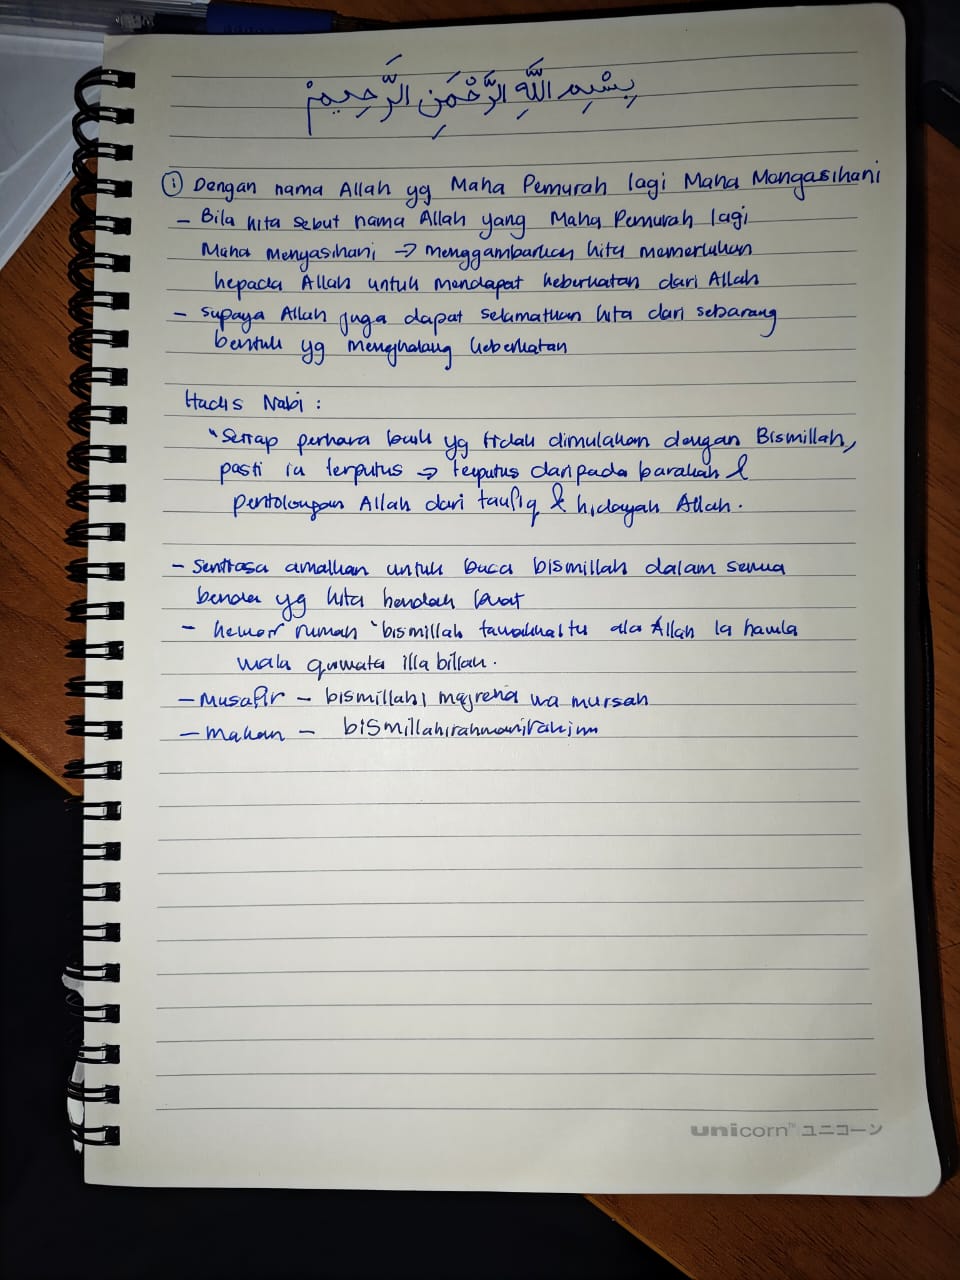 بِسْمِ اللَّهِ الرَّحْمَنِ الرَّحِيمِ
① Dengan nama Allah yg Maha Pemurah lagi Maha Mengasihani
- Bila kita sebut nama Allah yang Maha Pemurah lagi
Maha Mengasihani → menggambarkan kita memerlukan
kepada Allah untuk mendapat keberkatan dari Allah
- supaya Allah juga dapat selamatkan kita dari sebarang
bentuk yg menghalang keberkatan
Hadis Nabi :
"Setiap perkara baik yg tidak dimulakan dengan Bismillah,
pasti ia terputus → terputus daripada barakah &
pertolongan Allah dari taufiq & hidayah Allah.
- Sentiasa amalkan untuk baca bismillah dalam semua
benda yg kita hendak buat
- keluar rumah 'bismillah tawakkaltu ala Allah la hawla
wala quwata illa billah.
- Musafir - bismillahi majreha wa mursah
- makan - bismillahirahmanirahim
unicorn™ ユニコーン